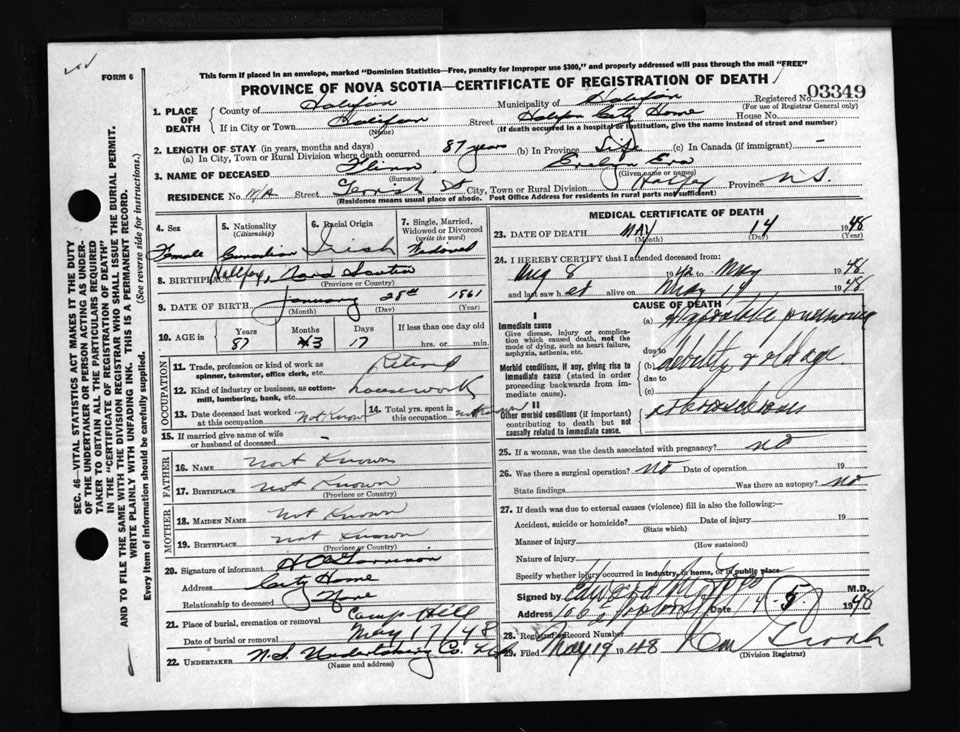 FORM 6
This form if placed in an envelope, marked "Dominion Statistics—Free, penalty for improper use $300," and properly addressed will pass through the mail "FREE"
PROVINCE OF NOVA SCOTIA—CERTIFICATE OF REGISTRATION OF DEATH
Registered No. 03349
(For use of Registrar General only)
1. PLACE OF DEATH
County of Halifax Municipality of Halifax
If in City or Town Halifax Street Halifax City Home House No.
(Name) (If death occurred in a hospital or institution, give the name instead of street and number)
2. LENGTH OF STAY (in years, months and days)
(a) In City, Town or Rural Division where death occurred 87 years (b) In Province Life (c) In Canada (if immigrant) —
3. NAME OF DECEASED Evelyn Eva
(Surname) (Given name or names)
RESIDENCE No. Street City, Town or Rural Division Halifax Province N.S.
(Residence means usual place of abode. Post Office Address for residents in rural parts not sufficient)
4. Sex Female
5. Nationality (Citizenship) Canadian
6. Racial Origin Irish
7. Single, Married, Widowed or Divorced (write the word) Widowed
8. BIRTHPLACE Halifax, Nova Scotia
(Province or Country)
9. DATE OF BIRTH January 28th 1861
(Month) (Day) (Year)
10. AGE in Years 87 Months 3 Days 17 If less than one day old hrs. or min.
OCCUPATION
11. Trade, profession or kind of work as spinner, teamster, office clerk, etc. Retired
12. Kind of industry or business, as cotton-mill, lumbering, bank, etc. housework
13. Date deceased last worked at this occupation Not Known
14. Total yrs. spent in this occupation not known
15. If married give name of wife or husband of deceased —
FATHER
16. NAME Not Known
17. BIRTHPLACE Not Known
(Province or Country)
MOTHER
18. MAIDEN NAME Not Known
19. BIRTHPLACE not Known
(Province or Country)
20. Signature of informant
Address City Home
Relationship to deceased None
21. Place of burial, cremation or removal Camp Hill
Date of burial or removal May 17/48
22. UNDERTAKER N.S. Undertaking Co. Ltd
(Name and address)
MEDICAL CERTIFICATE OF DEATH
23. DATE OF DEATH MAY 14 1948
(Month) (Day) (Year)
24. I HEREBY CERTIFY that I attended deceased from:
Aug 8 to May 1948
and last saw her alive on May 14 1948
CAUSE OF DEATH
I
Immediate cause
Give disease, injury or complication which caused death, not the mode of dying, such as heart failure, asphyxia, asthenia, etc.
(a) Hypostatic pneumonia
due to
Morbid conditions, if any, giving rise to immediate cause (stated in order proceeding backwards from immediate cause).
(b) debility & old age
due to
(c)
II
Other morbid conditions (if important) contributing to death but not causally related to immediate cause.
25. If a woman, was the death associated with pregnancy? no
26. Was there a surgical operation? no Date of operation 19
State findings Was there an autopsy? no
27. If death was due to external causes (violence) fill in also the following:—
Accident, suicide or homicide? Date of injury 19
(State which)
Manner of injury
(How sustained)
Nature of injury
Specify whether injury occurred in industry, in home, or in public place
Signed by M.D.
Address Date 14 5 1948
28. Registrar Record Number
29. Filed May 19 1948
(Division Registrar)
SEC. 46—VITAL STATISTICS ACT MAKES IT THE DUTY
OF THE UNDERTAKER OR PERSON ACTING AS UNDERTAKER TO OBTAIN ALL THE PARTICULARS REQUIRED
IN THE "CERTIFICATE OF REGISTRATION OF DEATH"
AND TO FILE THE SAME WITH THE DIVISION REGISTRAR WHO SHALL ISSUE THE BURIAL PERMIT.
WRITE PLAINLY WITH UNFADING INK. THIS IS A PERMANENT RECORD.
Every item of information should be carefully supplied. (See reverse side for instructions.)